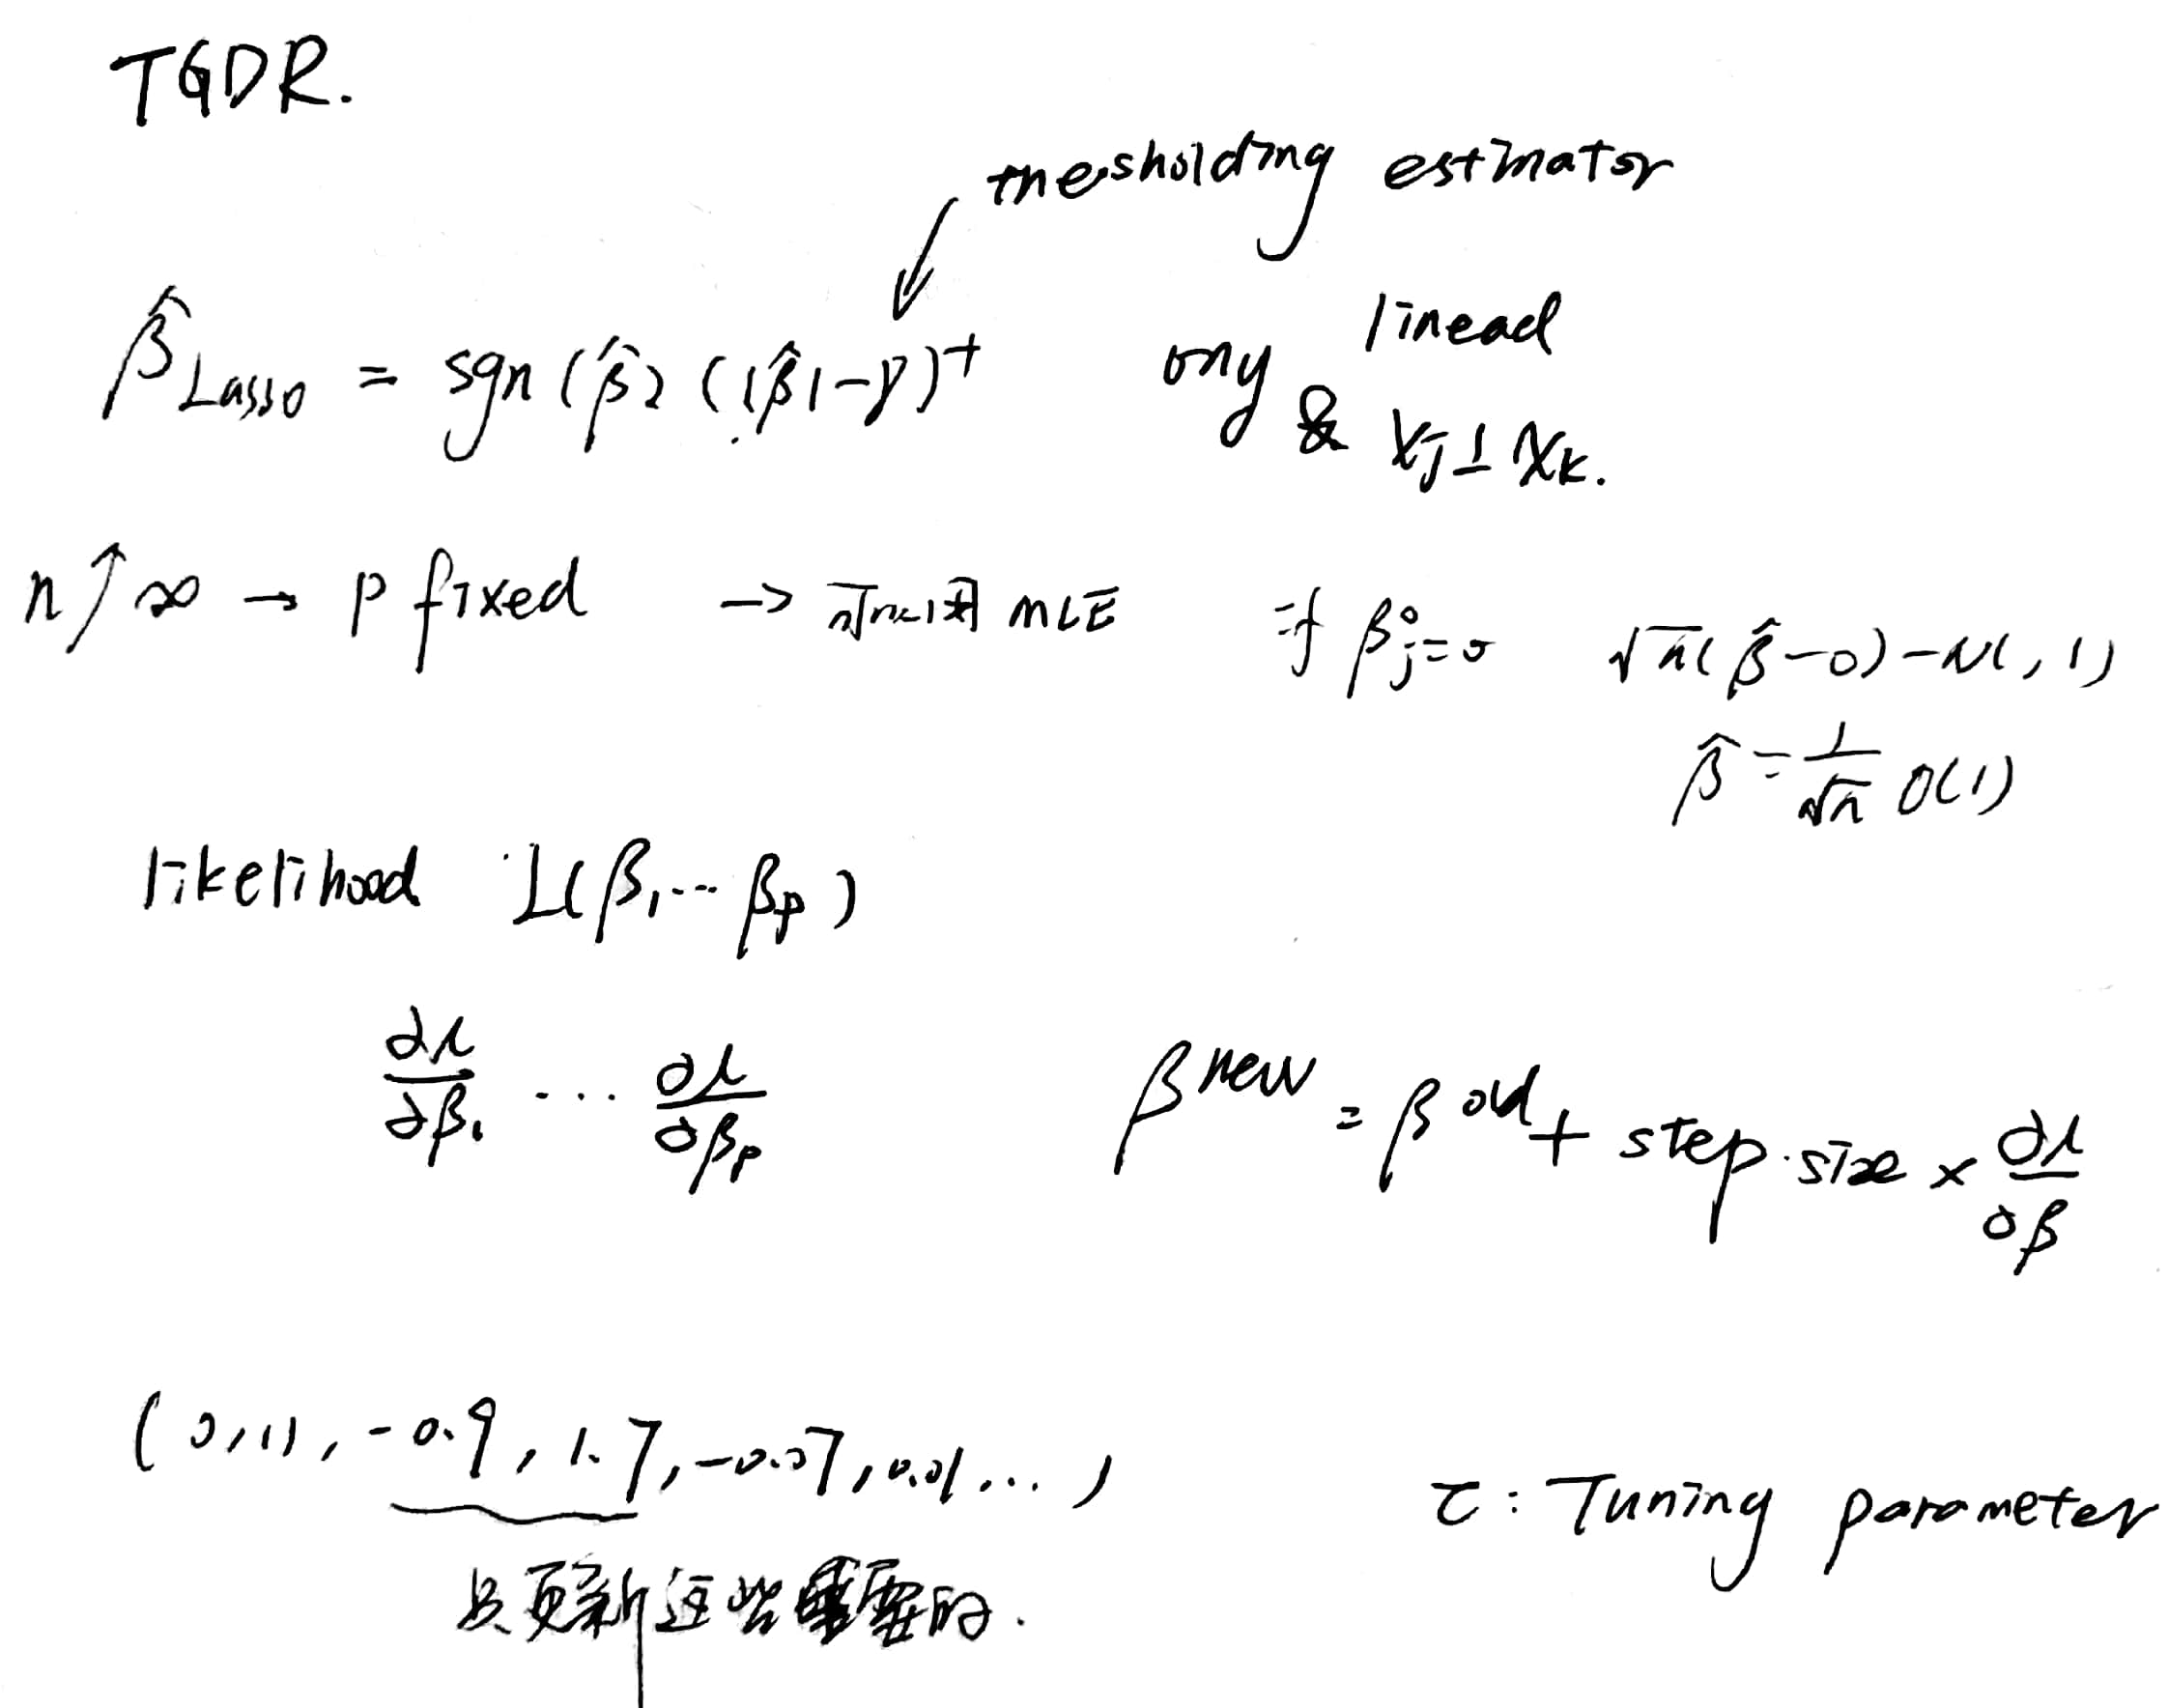 TGDR.
thersholding estimator
β̂ Lasso = sgn (β̂) (|β̂| - γ)⁺
only linear
& Xj ⊥ Xk.
n↑∞ → p fixed → MLE if β⁰j = 0 √n( β̂ - 0) - N( , 1)
β̂ = 1/√n O(1)
likelihood L(β₁ ... βp)
∂l/∂β₁ ... ∂l/∂βp
β new = β old + step.size × ∂l/∂β
( 0.11, -0.9, 1.7, -0.07, 0.01 ... )
τ: Tuning parameter
只更新这些重要的.